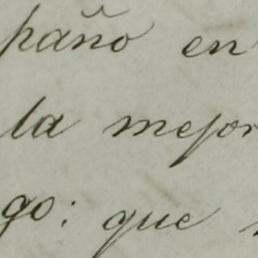 paño en
la mejor
go: que